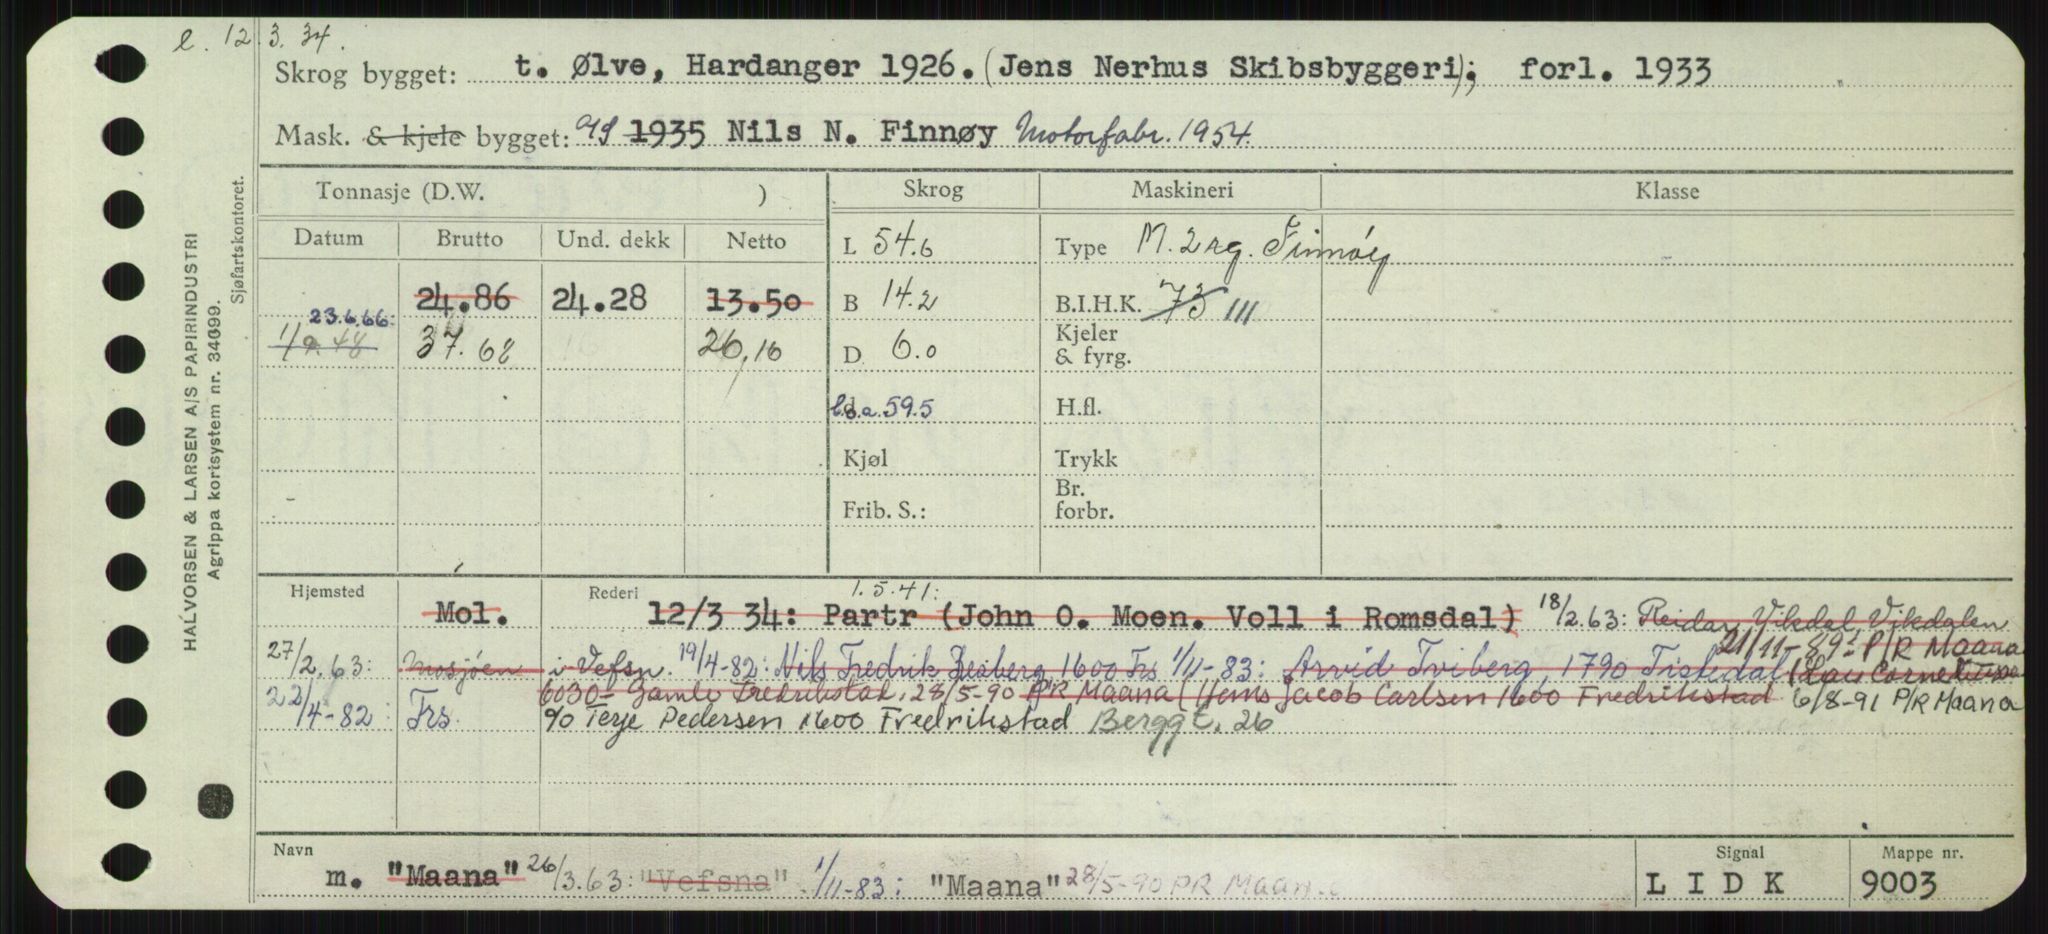 e. 12.3.34.
Skrog bygget: t. Ølve, Hardanger 1926. (Jens Nerhus Skibsbyggeri); forl. 1933
Mask. & kjele bygget: 1935 Nils N. Finnøy Motorfabr. 1954.
HALVORSEN & LARSEN A/S PAPIRINDUSTRI
Agrippa kortsystem nr. 34099.
Sjøfartskontoret.
Tonnasje (D.W. ) Skrog Maskineri Klasse
Datum Brutto Und. dekk Netto L 54.6 Type M. 2 sg. Finnøy
24.86 24.28 13.50 B 14.2 B.I.H.K. 73 111
23.6.66:
1/9.48 37.68 26,16 D. 6.0 Kjeler & fyrg.
l.o.a. 59.5 H.fl.
Kjøl Trykk
Frib. S.: Br. forbr.
1.5.41:
Hjemsted Mol. Rederi 12/3 34: Partr (John O. Moen. Voll i Romsdal) 18/2.63: Reidar Vikdal Vikdalen
21/11-89: P/R Maana
27/2.63: Mosjøen i Vefsn. 19/4-82: Nils Fredrik 1600 Frs 1/11-83: Arvid Tviberg, 1790 Tistedal
22/4-82: Frs. Gamle Fredrikstad. 28/5-90 P/R Maana (Jens Jacob Carlsen 1600 Fredrikstad 6/8-91 P/R Maana
90 Terje Pedersen 1600 Fredrikstad Bergg t. 26
Navn m. "Maana" 26/3.63: "Vefsna" 1/11-83: "Maana" 28/5-90 PR Maana
Signal LIDK
Mappe nr. 9003